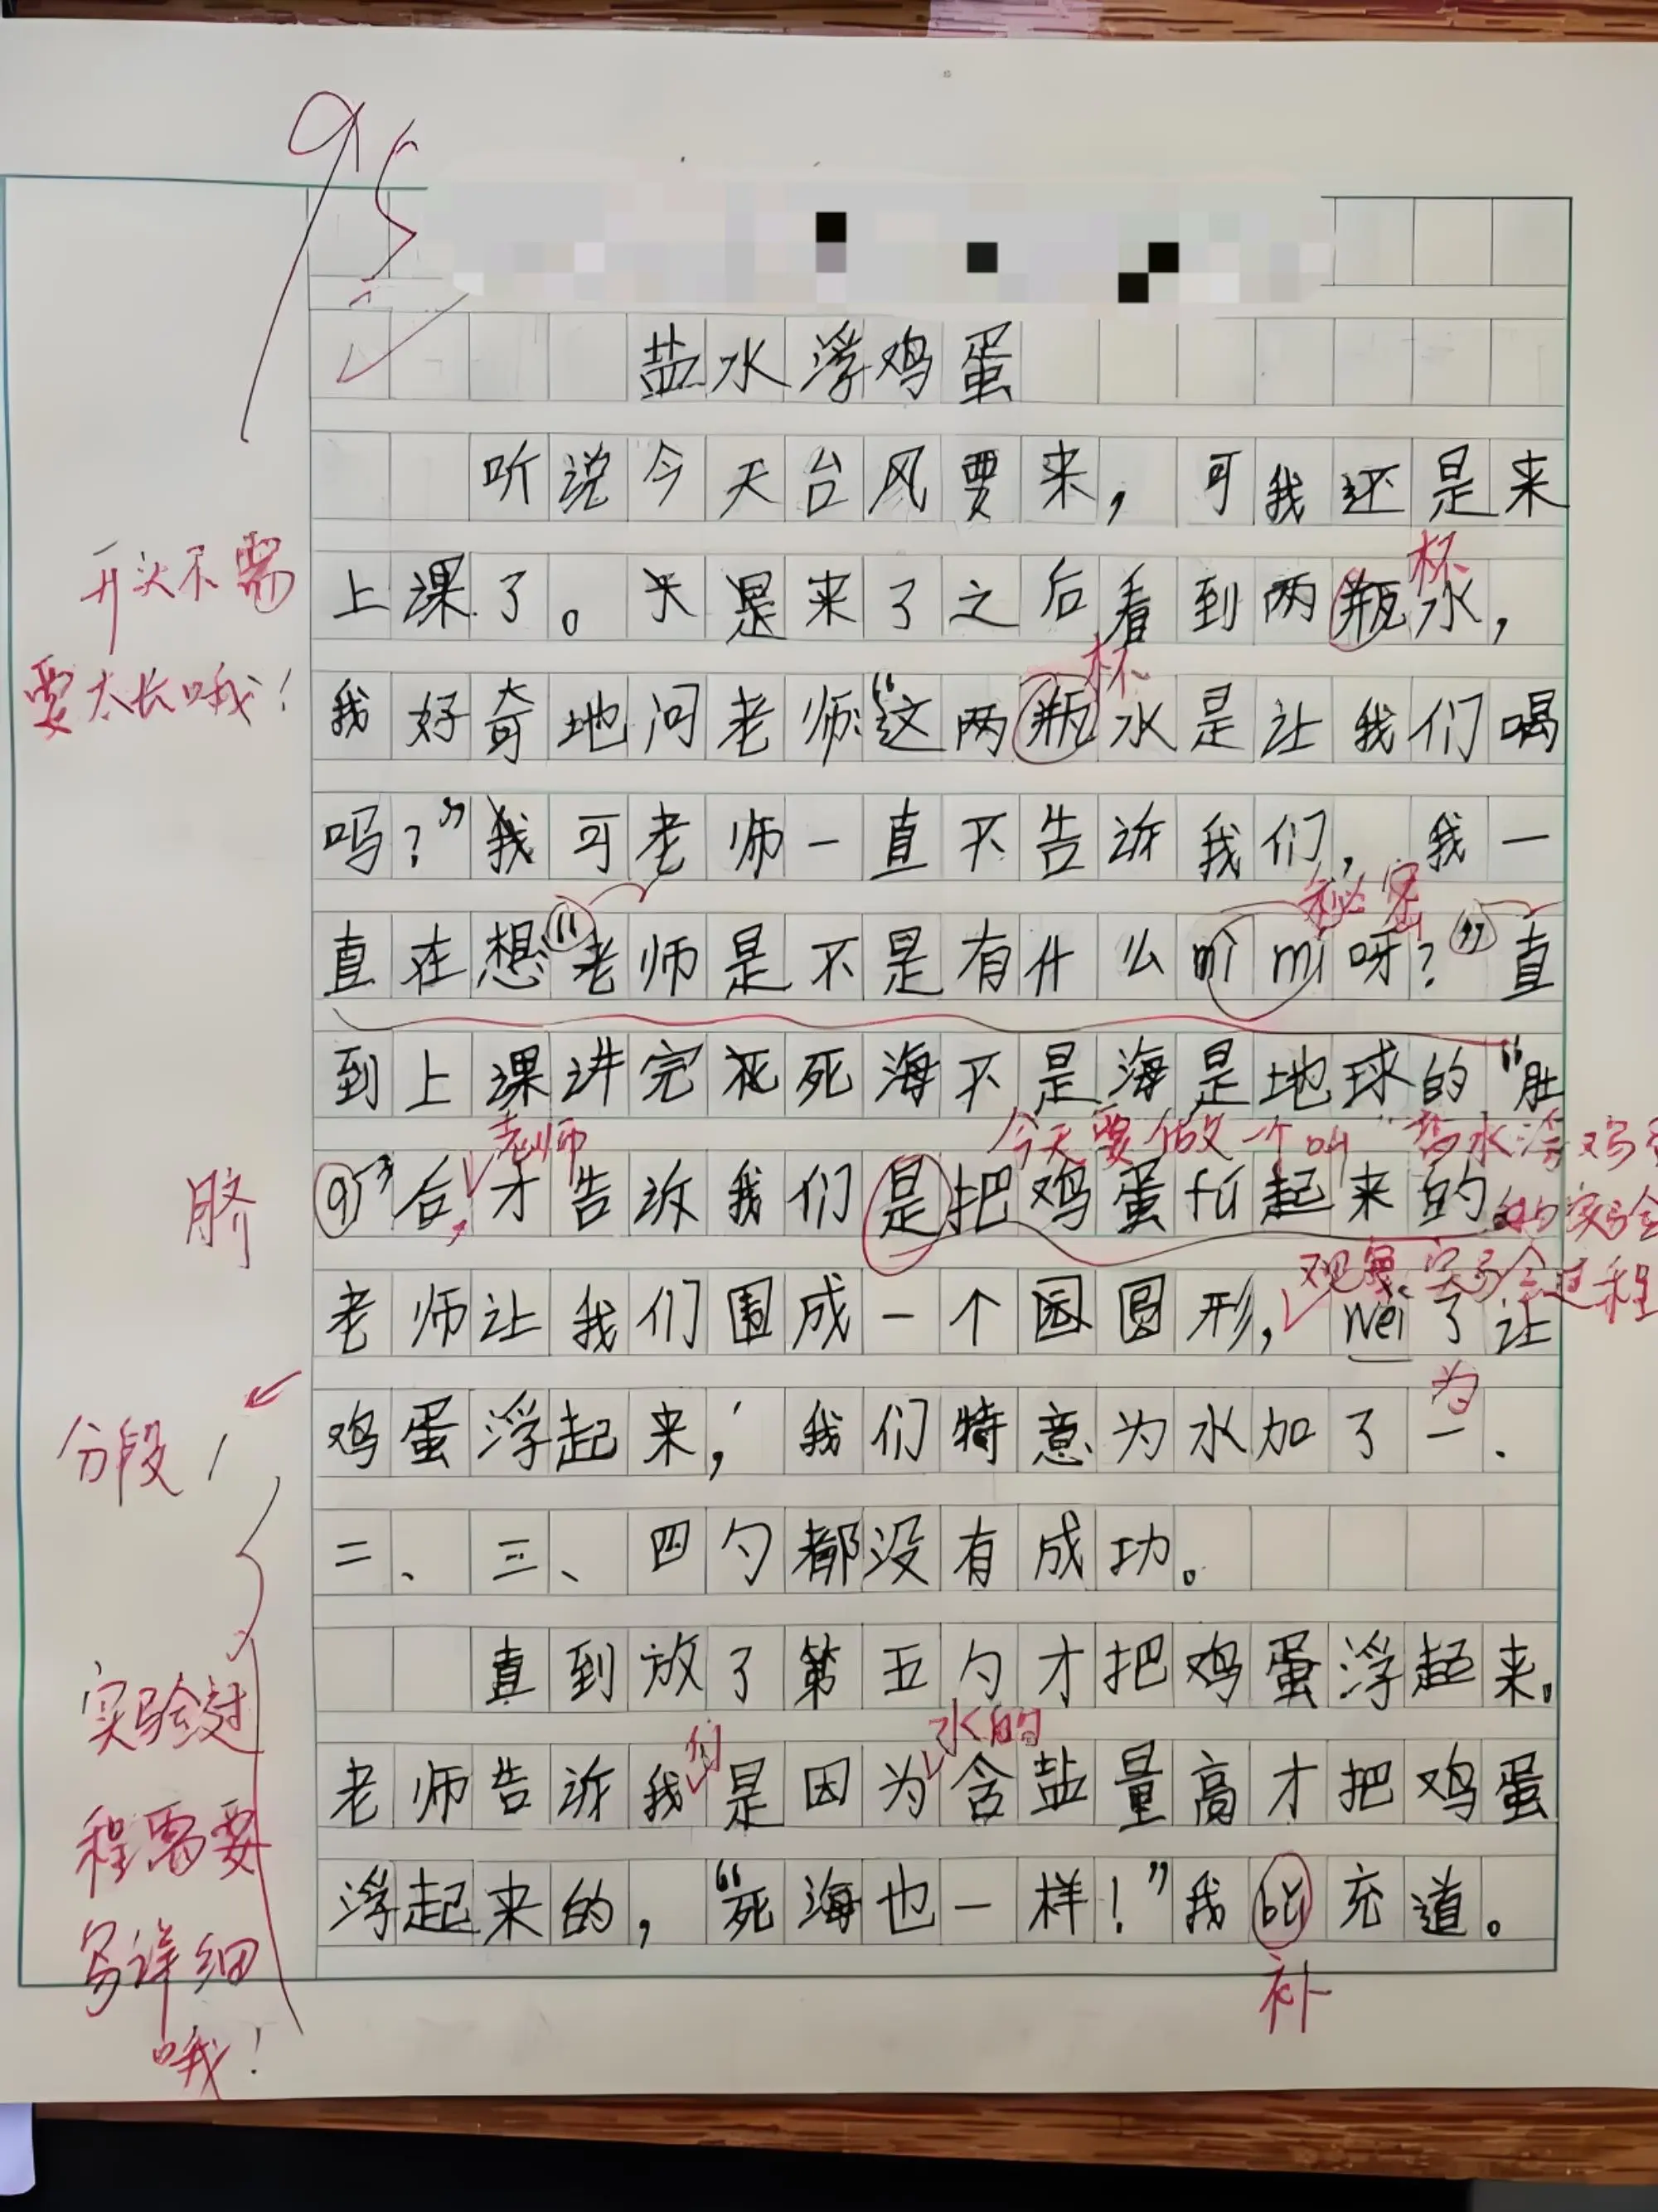 95
盐水浮鸡蛋
听说今天台风要来，可我还是来
开头不需
杯
上课了。于是来了之后看到两瓶水，
要太长哦！
杯
我好奇地问老师:“这两瓶水是让我们喝
吗?”我可老师一直不告诉我们,我一
秘密
直在想“老师是不是有什么mì mì呀?”直
到上课讲完死死海不是海是地球的“肚
老师
今天要做一个叫“盐水浮鸡蛋
脐
qí”后才告诉我们是把鸡蛋fú起来的。
的实验
观察实验过程
老师让我们围成一个园圆形,wèi了让
为
分段！
鸡蛋浮起来,我们特意为水加了一、
二、三、四勺都没有成功。
直到放了第五勺才把鸡蛋浮起来。
实验过
们
水的
老师告诉我是因为含盐量高才把鸡蛋
程需要
浮起来的,“死海也一样!”我bǔ充道。
写详细
补
哦！